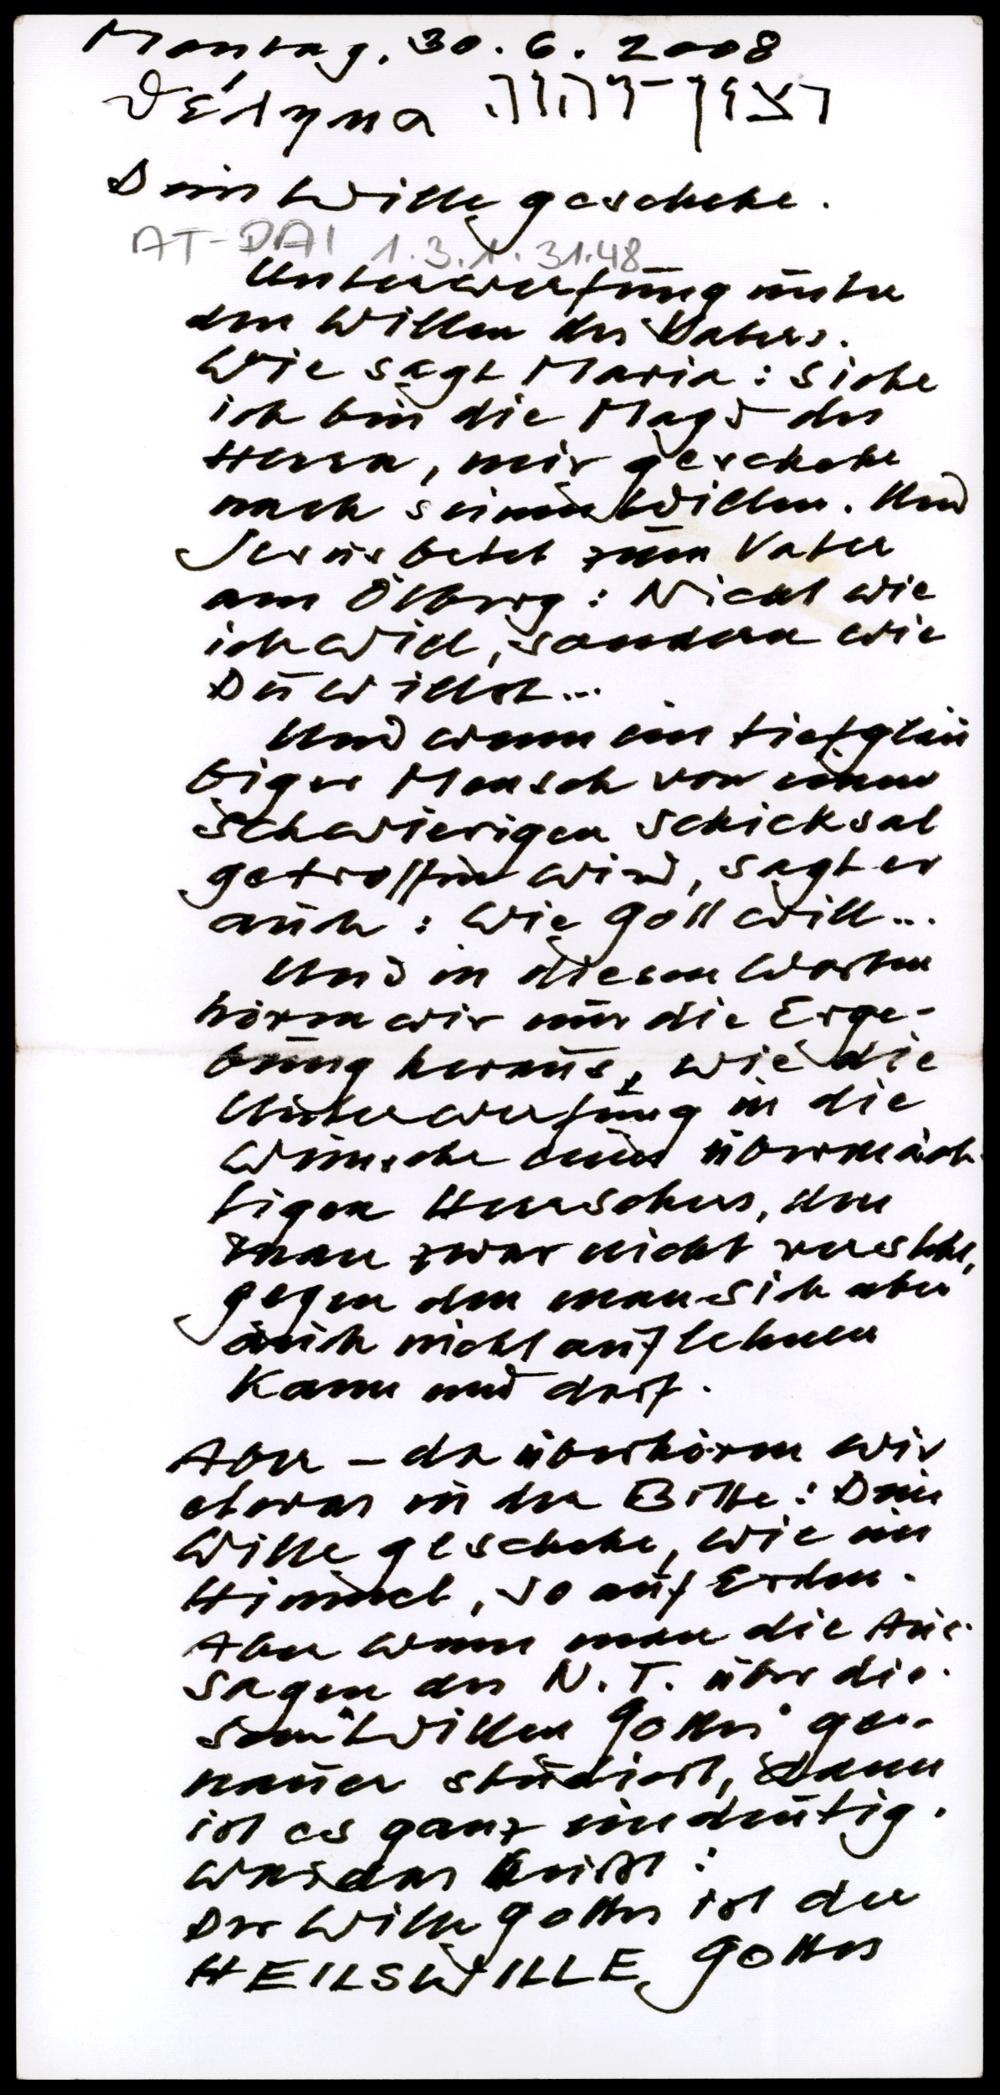 Montag, 30. 6. 2008
θέλημα רצון יהוה
Dein Wille geschehe.
AT-DAI 1.3.1.31.48
Unterwerfung unter
den Willen des Vaters.
Wie sagt Maria: Siehe
ich bin die Magd des
Herrn, mir geschehe
nach seinem Willen. Und
Jesus betet zum Vater
am Ölberg: Nicht wie
ich will, sondern wie
Du willst...
Und wenn ein tiefgläu
biger Mensch von einem
schwierigen Schicksal
getroffen wird, sagt er
auch: Wie Gott will...
Und in diesen Worten
hören wir nur die Erge-
bung heraus, wie die
Unterwerfung in die
Wünsche eines übermäch-
tigen Herrschers, den
man zwar nicht versteht,
gegen den man sich aber
auch nicht auflehnen
kann und darf.
Aber – da überhören wir
etwas in der Bitte: Dein
Wille geschehe, wie im
Himmel, so auf Erden.
Aber wenn man die Aus-
sagen des N.T. über die-
sen "Willen Gottes" ge-
nauer studiert, dann
ist es ganz eindeutig.
Was das heißt:
Der Wille Gottes ist der
HEILSWILLE Gottes